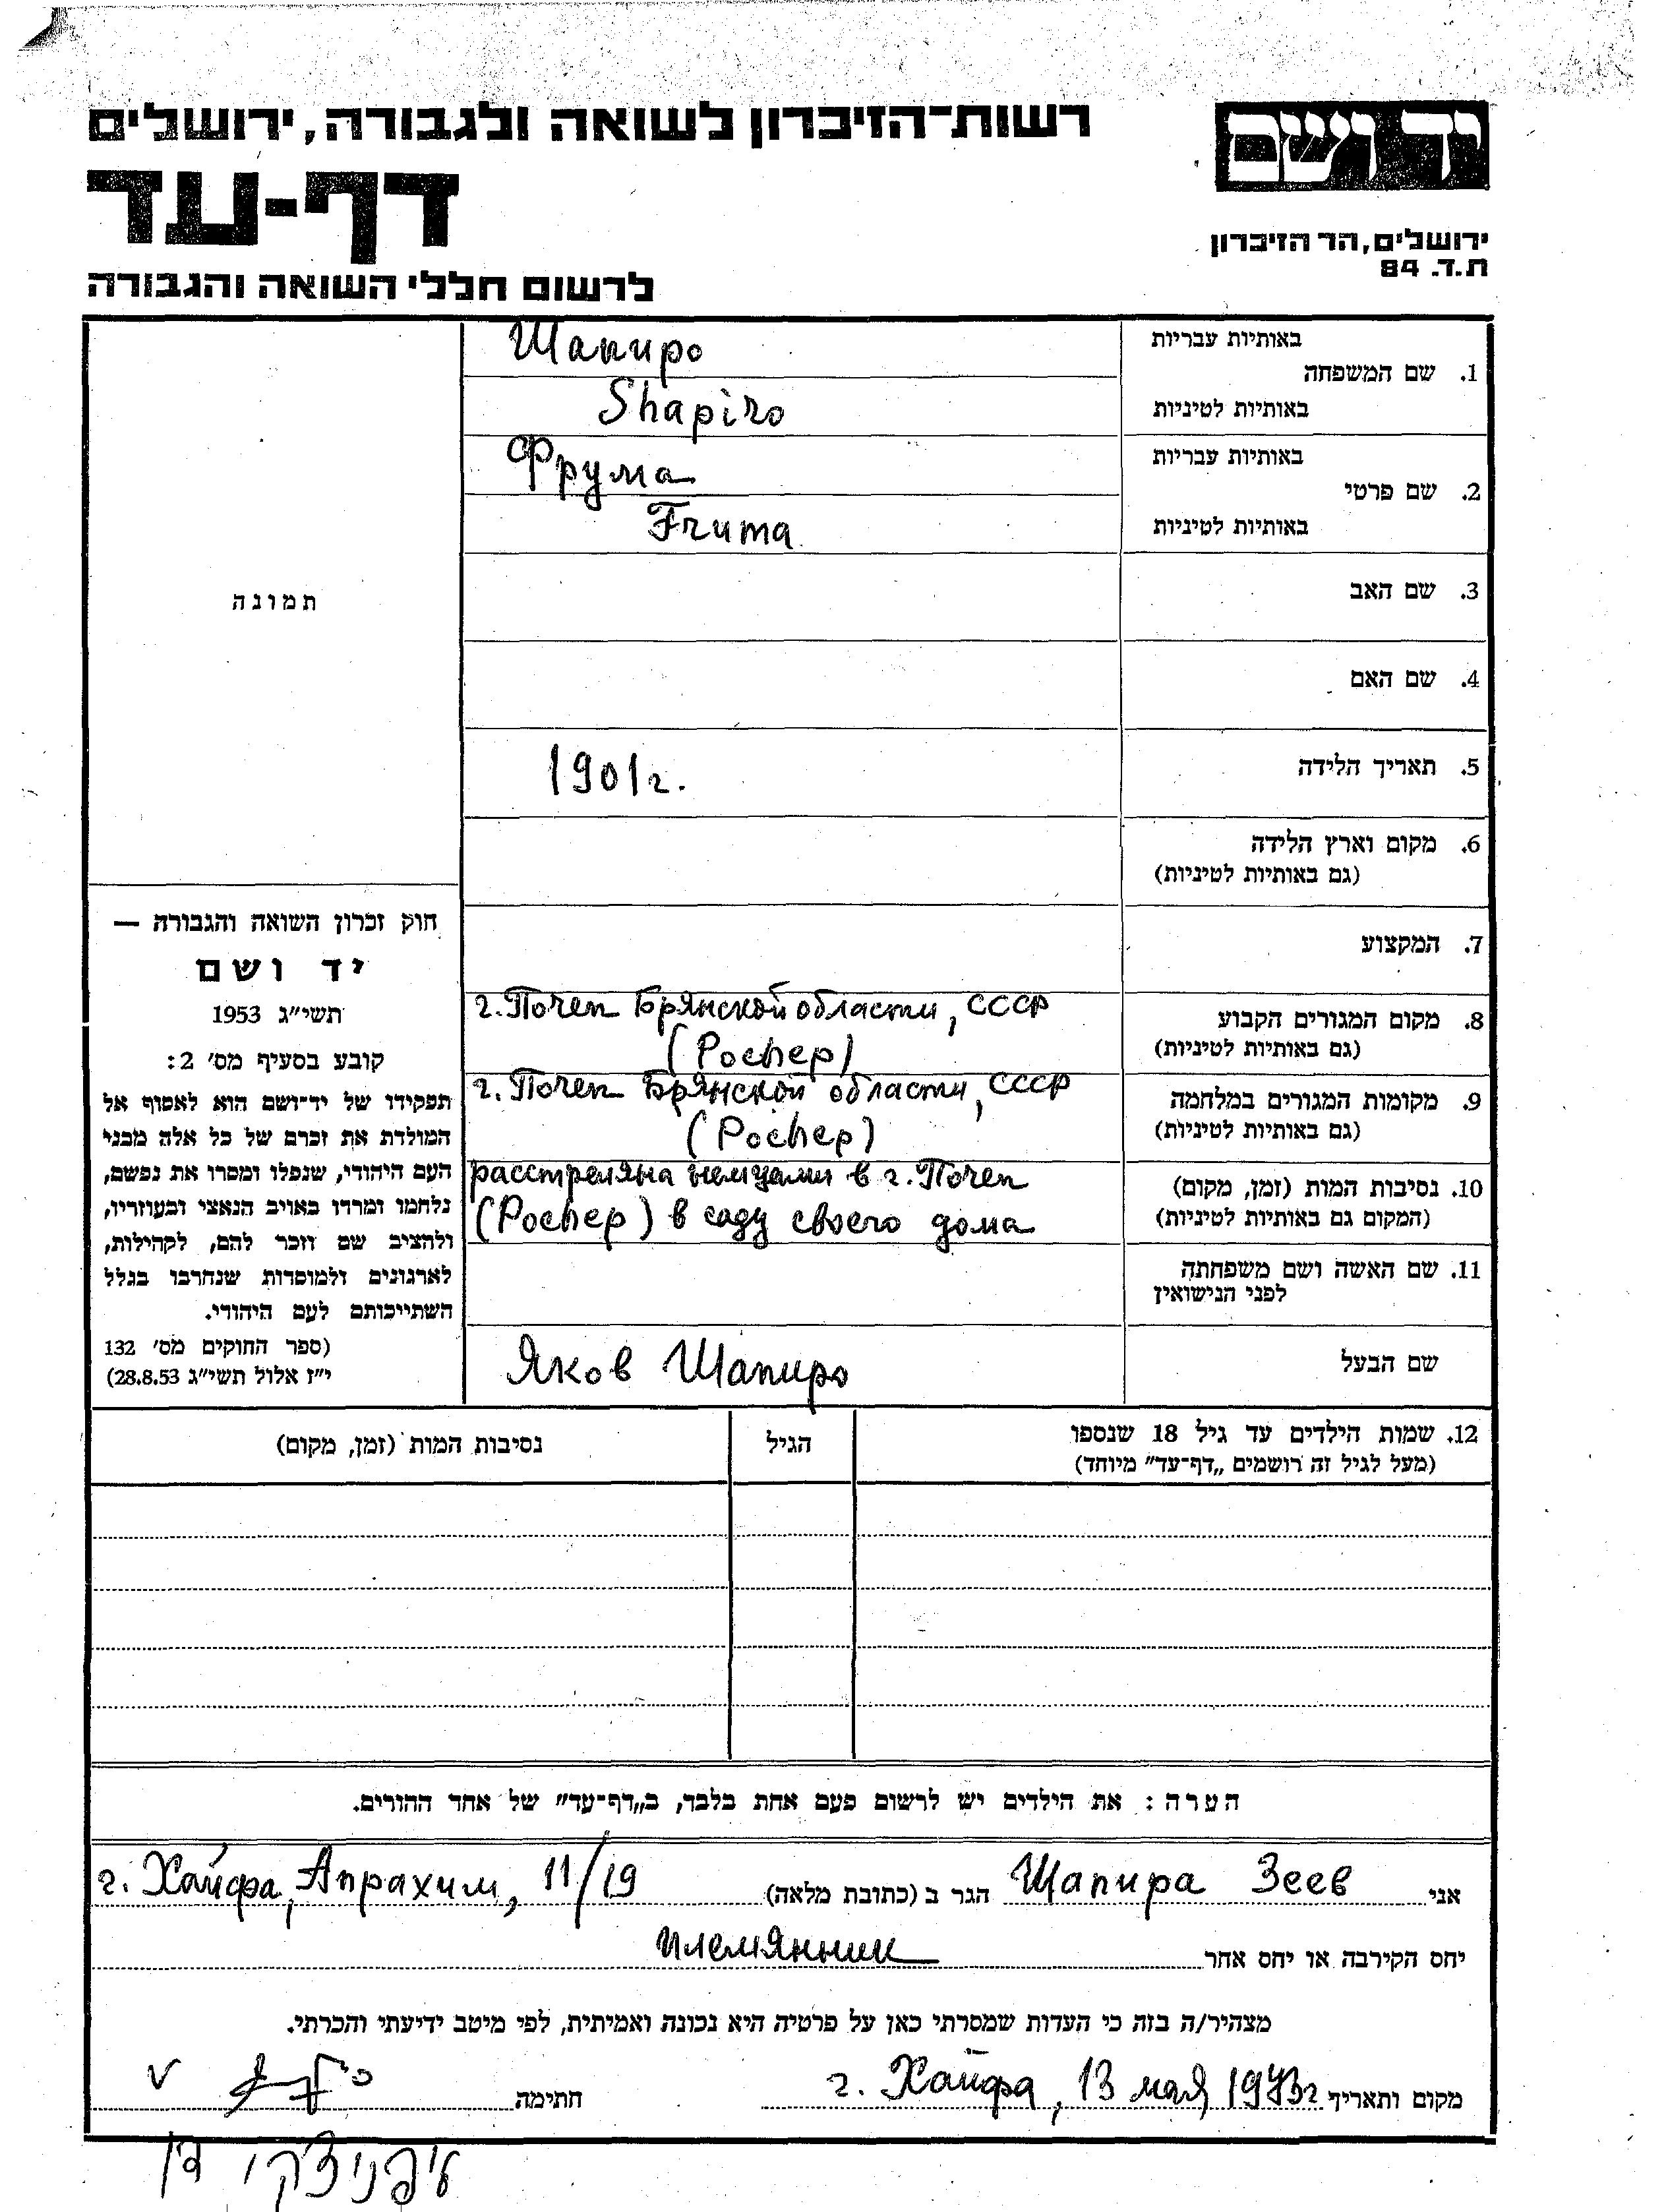 רשות־הזיכרון לשואה ולגבורה, ירושלים
יד ושם
דף-עד
ירושלים, הר הזיכרון
ת.ד. 84
לרשום חללי השואה והגבורה
באותיות עבריות
Шапиро
1. שם המשפחה
באותיות לטיניות
Shapiro
באותיות עבריות
Фрума
2. שם פרטי
באותיות לטיניות
Fruma
תמונה
3. שם האב
4. שם האם
5. תאריך הלידה
1901 г.
6. מקום וארץ הלידה
(גם באותיות לטיניות)
7. המקצוע
8. מקום המגורים הקבוע
(גם באותיות לטיניות)
г. Почеп Брянской области, СССР
(Pochep)
9. מקומות המגורים במלחמה
(גם באותיות לטיניות)
г. Почеп Брянской области, СССР
(Pochep)
10. נסיבות המות (זמן, מקום)
(המקום גם באותיות לטיניות)
расстреляна немцами в г. Почеп
(Pochep) в саду своего дома
11. שם האשה ושם משפחתה
לפני הנישואין
שם הבעל
Яков Шапиро
חוק זכרון השואה והגבורה —
יד ושם
תשי״ג 1953
קובע בסעיף מס׳ 2:
תפקידו של יד־ושם הוא לאסוף אל
המולדת את זכרם של כל אלה מבני
העם היהודי, שנפלו ומסרו את נפשם,
נלחמו ומרדו באויב הנאצי ובעוזריו,
ולהציב שם וזכר להם, לקהילות,
לארגונים ולמוסדות שנחרבו בגלל
השתייכותם לעם היהודי.
(ספר החוקים מס׳ 132
י״ז אלול תשי״ג 28.8.53)
12. שמות הילדים עד גיל 18 שנספו
(מעל לגיל זה רושמים „דף־עד״ מיוחד)
הגיל
נסיבות המות (זמן, מקום)
הערה: את הילדים יש לרשום פעם אחת בלבד, ב„דף־עד״ של אחד ההורים.
אני Шапира Зеев הגר ב (כתובת מלאה) г. Хайфа, Апрахим, 11/19
יחס הקירבה או יחס אחר племянник
מצהיר/ה בזה כי העדות שמסרתי כאן על פרטיה היא נכונה ואמיתית, לפי מיטב ידיעתי והכרתי.
מקום ותאריך г. Хайфа, 13 мая 1973 г חתימה